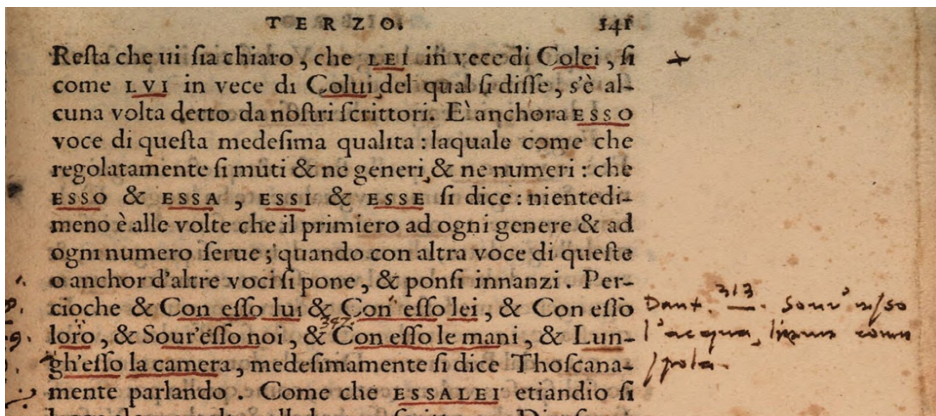 TERZO. 141
Resta che ui sia chiaro, che LEI in vece di Colei, si
come LVI in vece di Colui del qual si disse, s'è al-
cuna volta detto da nostri scrittori. E' anchora ESSO
voce di questa medesima qualita: laquale come che
regolatamente si muti & ne generi, & ne numeri: che
ESSO & ESSA, ESSI & ESSE si dice: nientedi-
meno è alle volte che il primiero ad ogni genere & ad
ogni numero serue; quando con altra voce di queste
o anchor d'altre voci si pone, & ponsi innanzi. Per-
cioche & Con esso lui & Con esso lei, & Con esso
loro, & Sour'esso noi, & Con esso le mani, & Lun-
gh'esso la camera, medesimamente si dice Thoscana-
mente parlando. Come che ESSALEI etiandio si
Dant. 313. Sovr'esso
l'acqua, lieve come
spola.